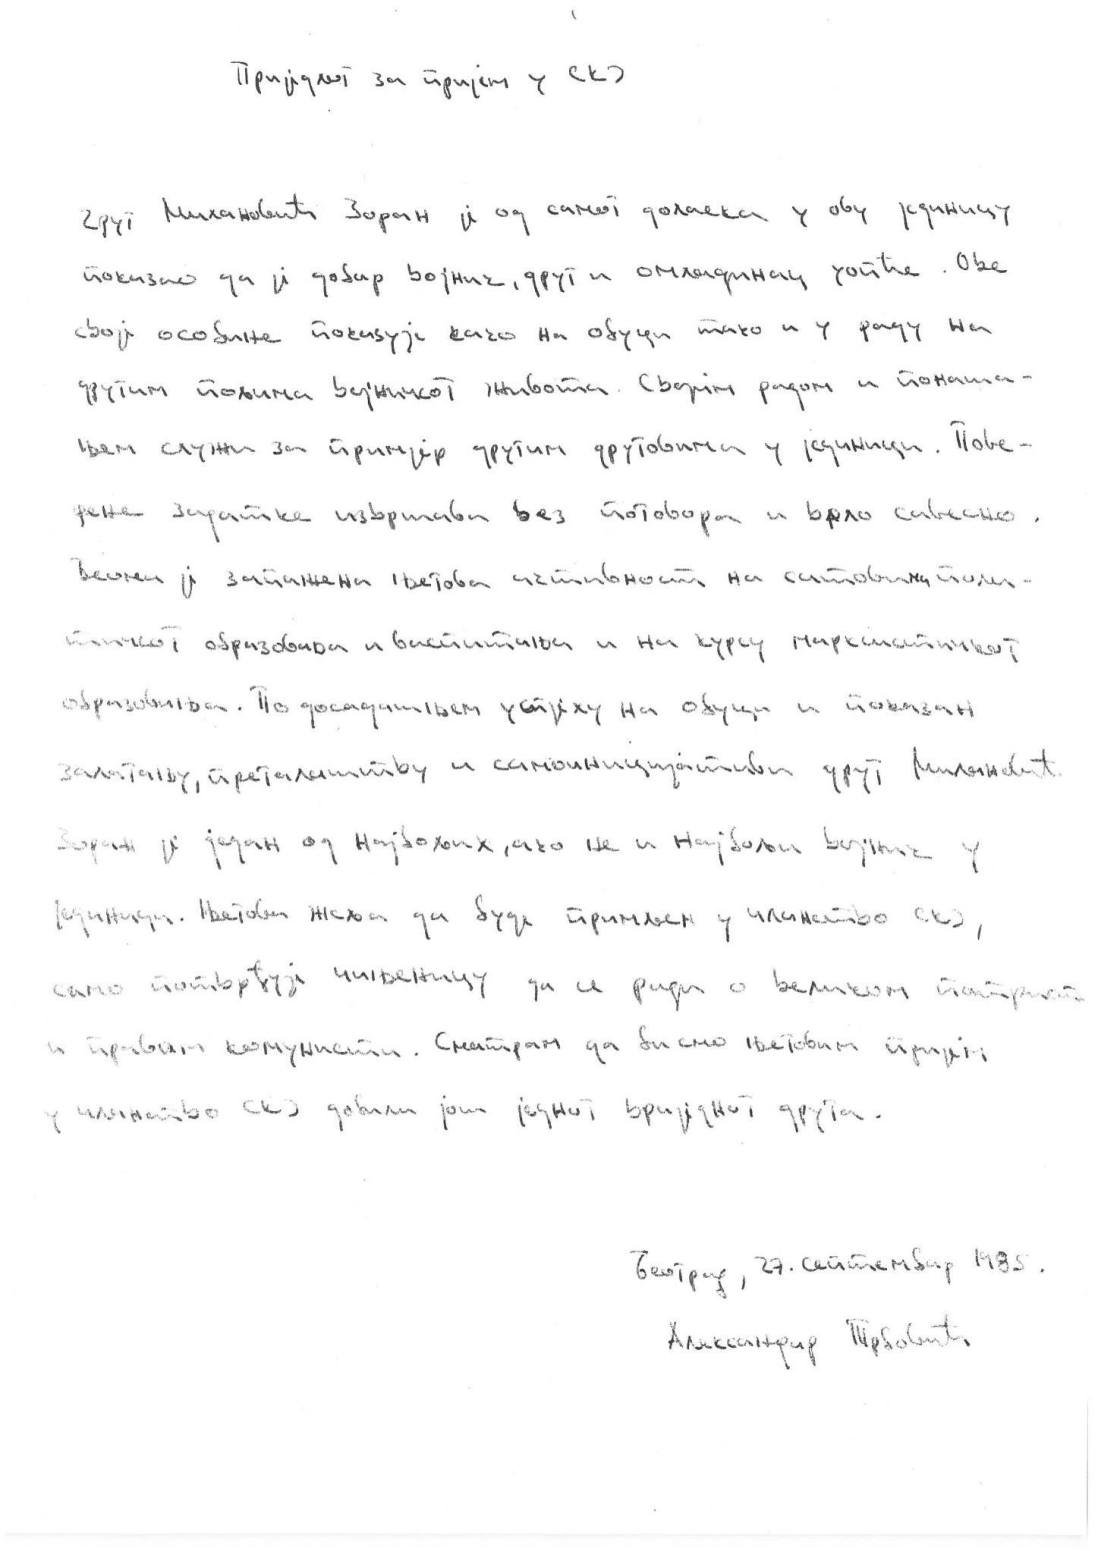 Приједлог за пријем у СКЈ
Друг Милановић Зоран је од самог доласка у ову јединицу
показао да је добар војник, друг и омладинац уопће. Ове
своје особине показује како на обуци тако и у раду на
другим пољима војничког живота. Својим радом и понаша-
њем служи за примјер другим друговима у јединици. Пове-
рене задатке извршава без поговора и врло савесно.
Веома је запажена његова активност на сатовима поли-
тичког образовања и васпитања и на курсу марксистичког
образовања. По досадашњем успјеху на обуци и показан
залагању, прегалаштву и самоиницијативи друг Милановић
Зоран је један од најбољих, ако не и најбољи војник у
јединици. Његова жеља да буде примљен у чланство СКЈ,
само потврђује чињеницу да се ради о великом патриоти
и правом комунисти. Сматрам да би смо његовим пријем
у чланство СКЈ добили још једног вриједног друга.
Београд, 27. септембар 1985.
Александар Трбовић